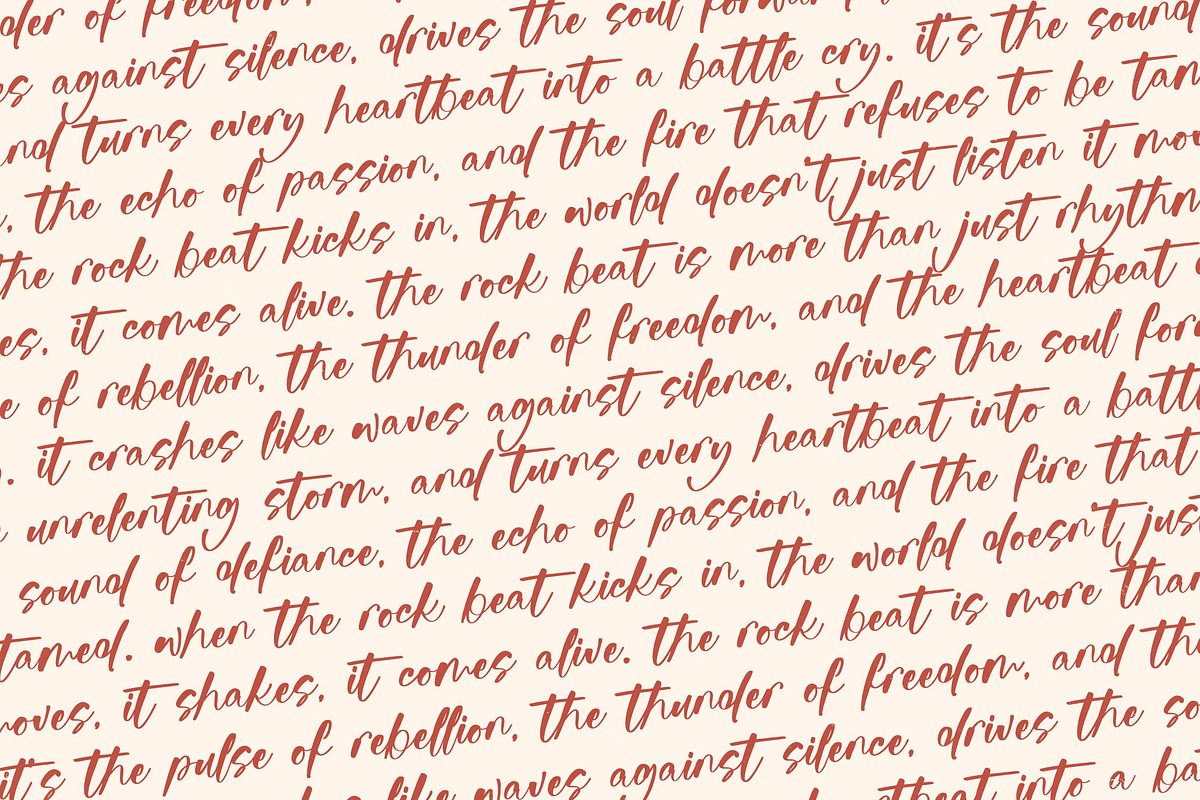 der of freedom,
es against silence, drives the soul forward
and turns every heartbeat into a battle cry. it's the sound
, the echo of passion, and the fire that refuses to be tam
the rock beat kicks in, the world doesn't just listen it mov
es, it comes alive. the rock beat is more than just rhythm
e of rebellion, the thunder of freedom, and the heartbeat
. it crashes like waves against silence, drives the soul for
unrelenting storm, and turns every heartbeat into a battl
sound of defiance, the echo of passion, and the fire that
tamed. when the rock beat kicks in, the world doesn't jus
moves, it shakes, it comes alive. the rock beat is more than
it's the pulse of rebellion, the thunder of freedom, and the
like waves against silence, drives the so
tbeat into a ba